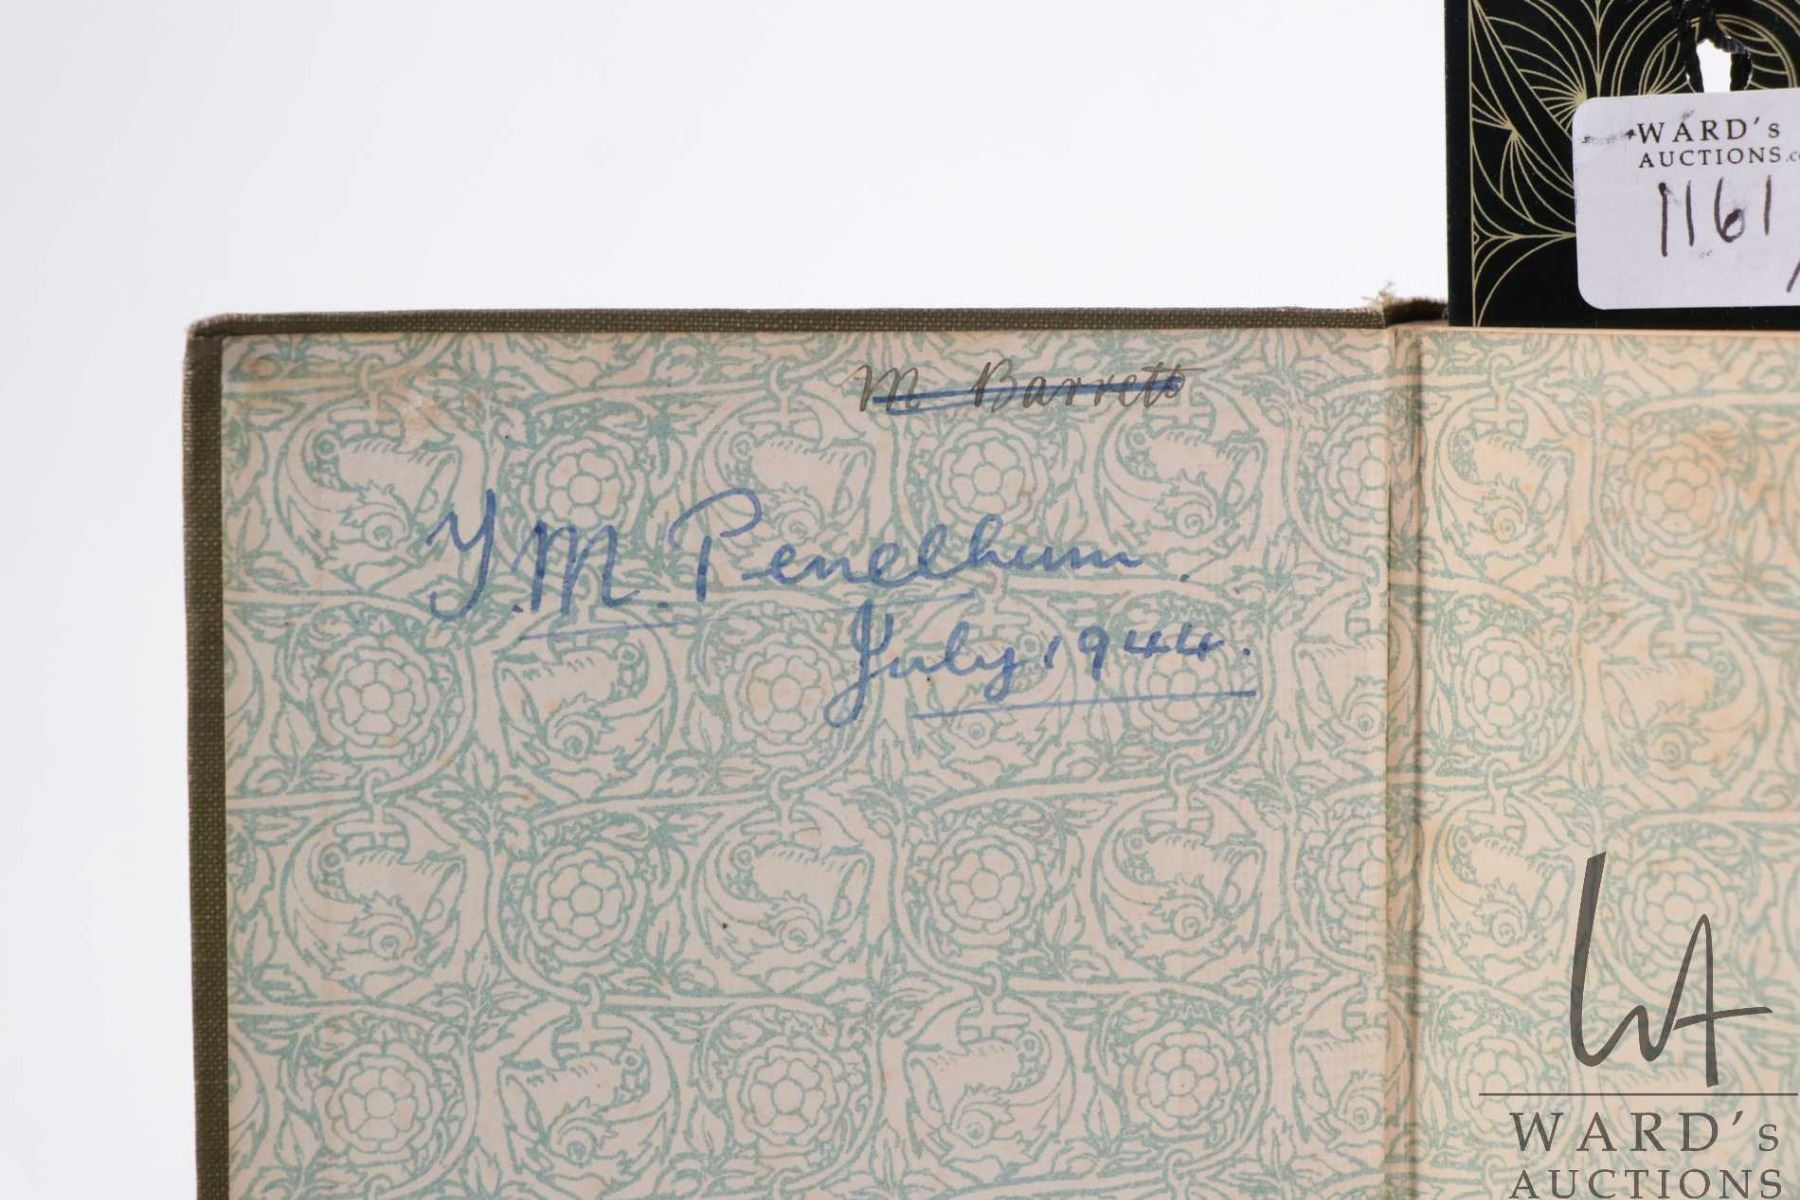 WARD's
AUCTIONS.c
1161
M Barrett
Y.M. Penelhum.
July 1944.
WARD's
AUCTIONS